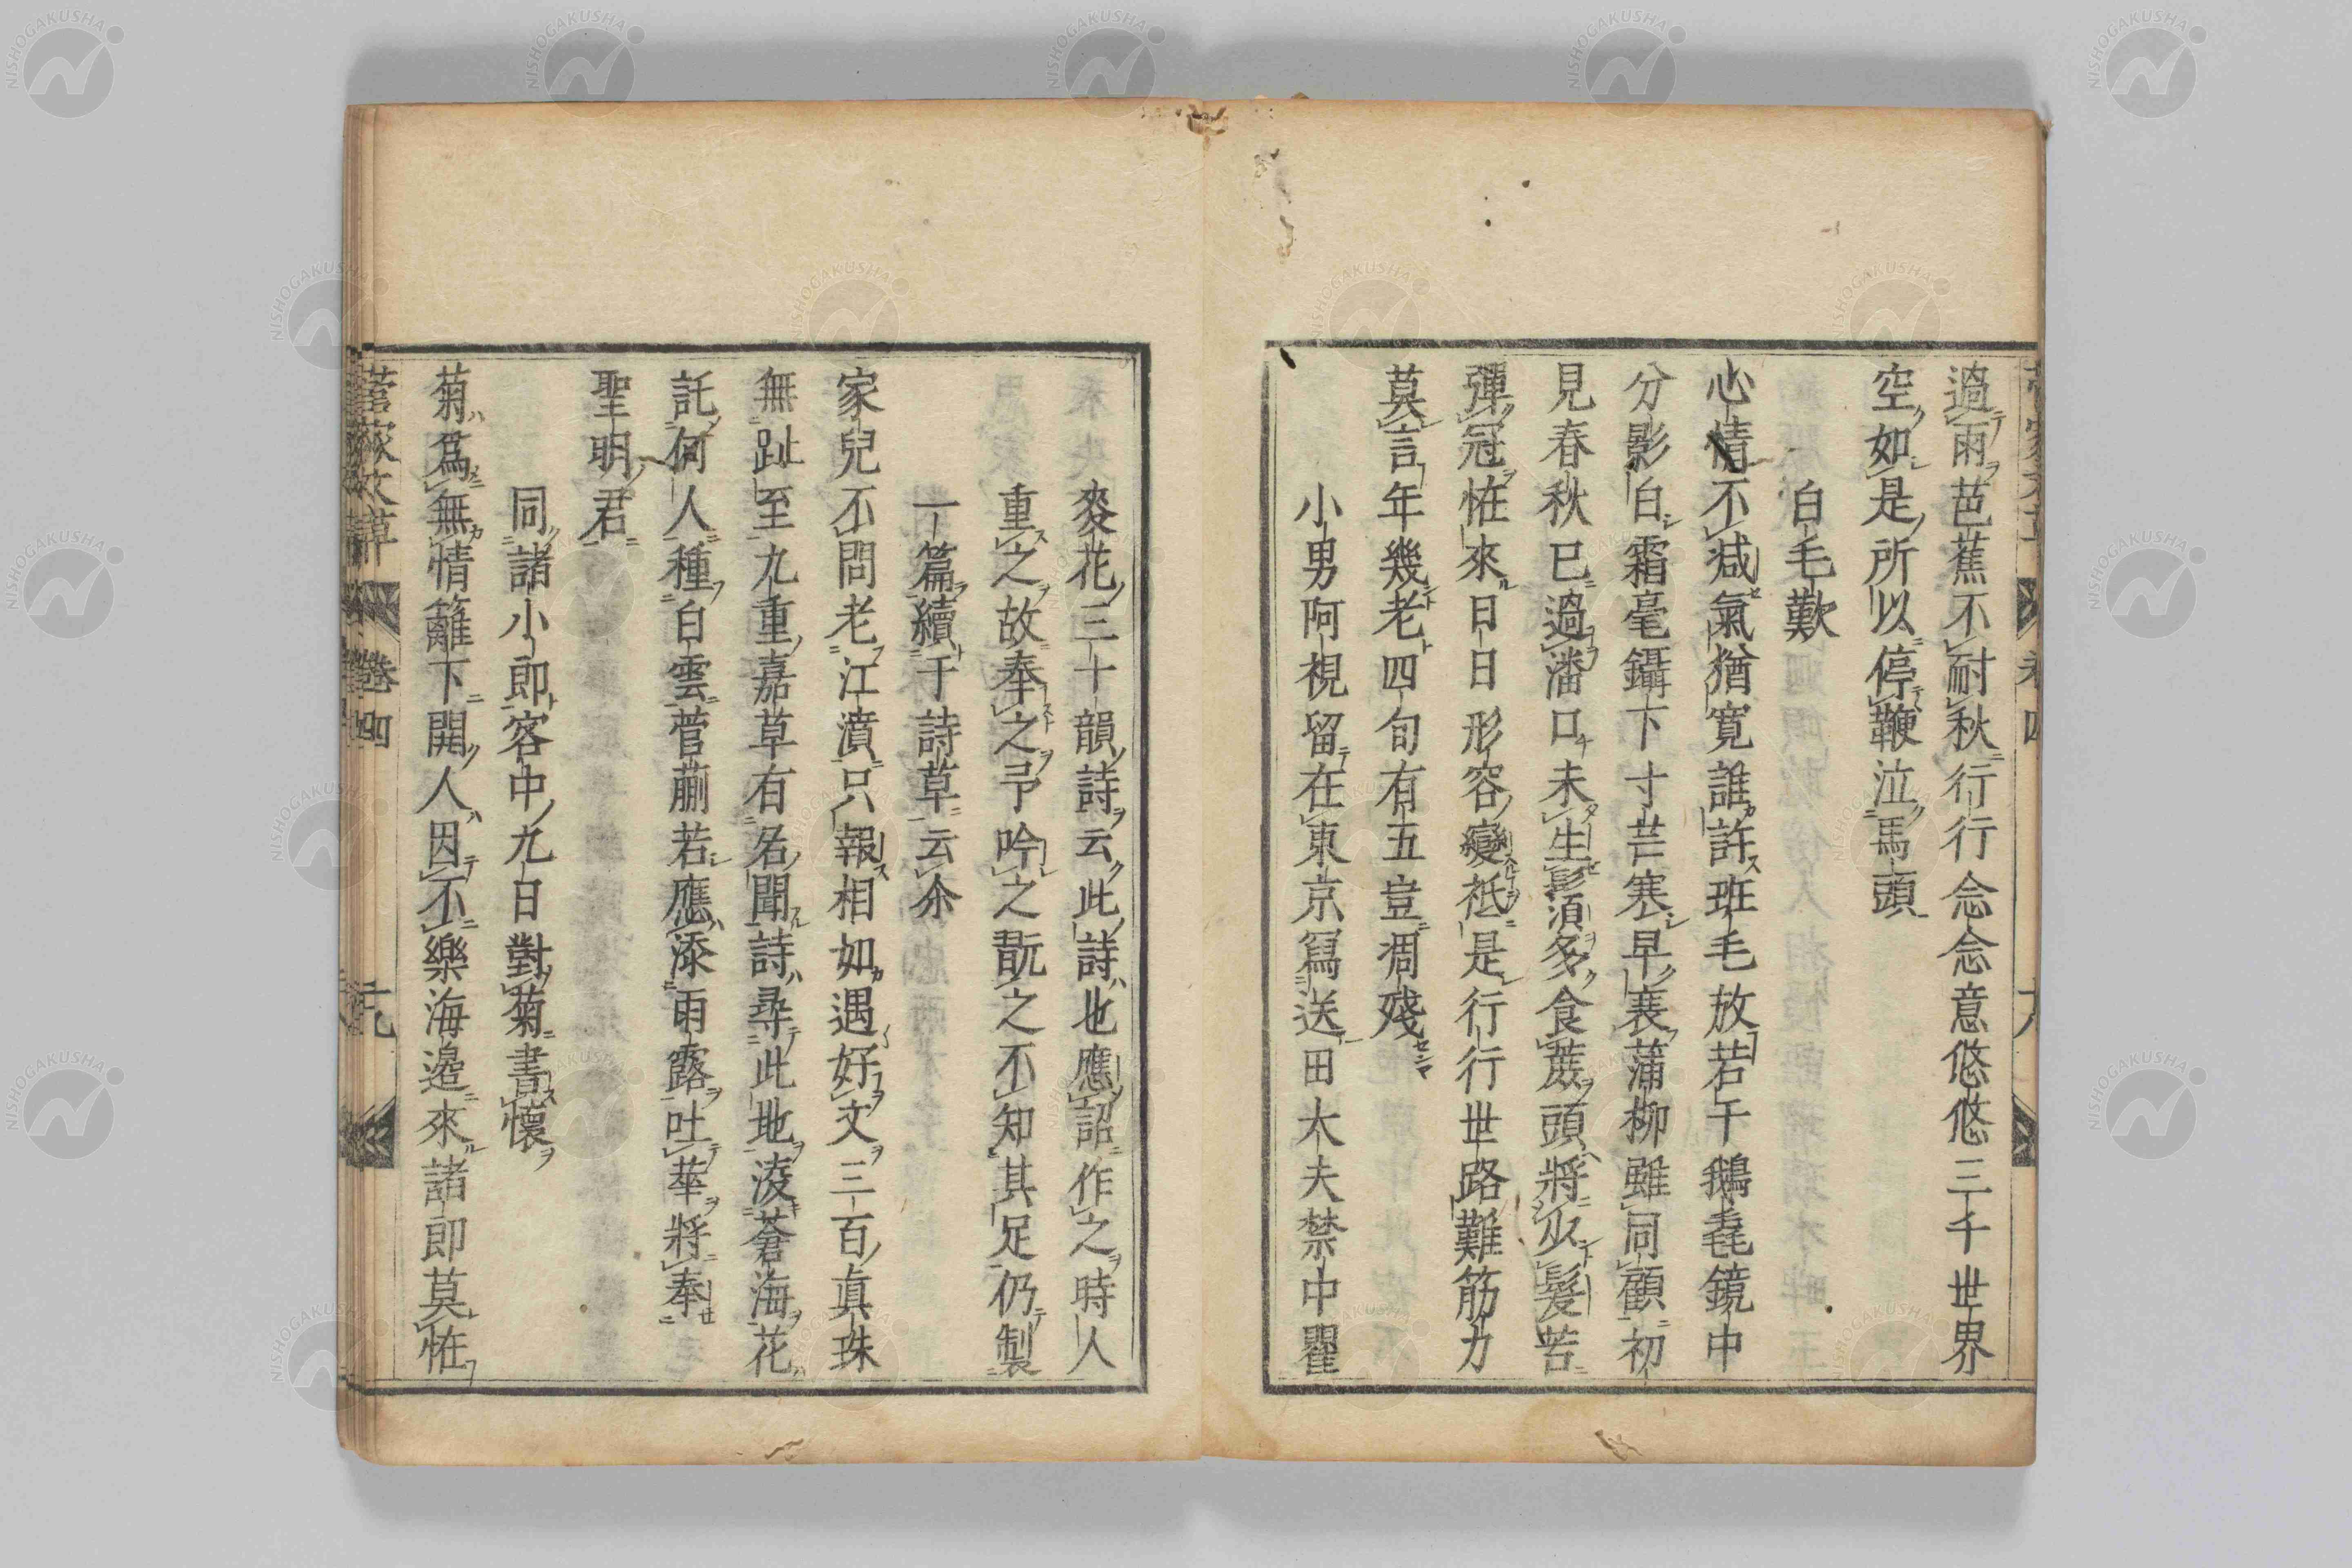 過雨芭蕉不耐秋行行念念意悠悠三千世界
空如是所以停鞭泣馬頭
白毛歎
心情不减氣猶寛誰許班毛放若干鵝毳鏡中
分影白霜毫鑷下寸芒塞早襄蒲柳雖同顧初
見春秋已過潘口未生髭須多食蔗頭將少髮苦
彈冠恠來日日形容變祗是行行世路難筋力
莫言年幾老四旬有五豈凋殘
小男阿視留在東京寫送田大夫禁中瞿
麥花三十韻詩云此詩也應詔作之時人
重之故奉之予吟之翫之不知其足仍製
一篇續于詩草云尒
家兒不問老江濆只報相如遇好文三百眞珠
無趾至九重嘉草有名聞詩尋此地凌蒼海花
託何人種白雲菅蒯若應添雨露吐華將奉
聖明君
同諸小郎客中九日對菊書懷
菊爲無情籬下開人因不樂海邉來諸郎莫恠
菅家文草
卷四
十九
NISHOGAKUSHA